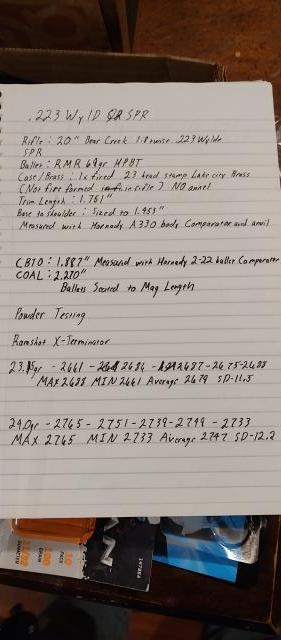 .223 Wylde SPR
Rifle: 20" Bear Creek 1:8 twist 223 Wylde
SPR
Bullet: RMR 69gr HPBT
Case/Brass: 1x fired 23 head stamp Lake city Brass
(Not fire formed in rifle) NO annel
Trim Length: 1.751"
Base to shoulder: Sized to 1.453"
Measured with Hornady A330 body Comparator and anvil
CBTO: 1.887" Measured with Hornady 2-22 bullet Comparator
COAL: 2.270"
Bullets Seated to Mag Length
Powder Testing
Ramshot X-Terminator
23.5gr - 2661 - 2684 - 2687 - 2675 - 2688
MAX 2688 MIN 2661 Average 2679 SD-11.5
24.0gr - 2765 - 2751 - 2739 - 2749 - 2733
MAX 2765 MIN 2733 Average 2747 SD-12.2